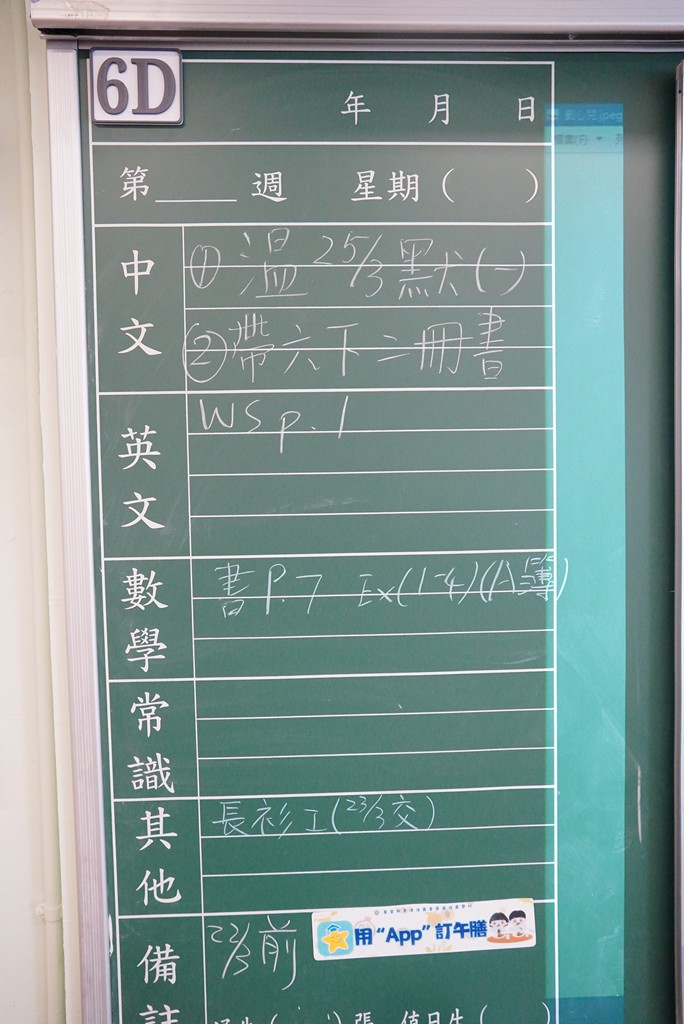 6D
年 月 日
第____週 星期( )
中文
① 溫 25/3 默(一)
② 帶六下二冊書
英文
WS p. 1
數學
書 P. 7 Ex(1-4)(A簿)
常識
其他
長衫工(23/3交)
備註
22/3前
用“App”訂午膳
張 值日生( )